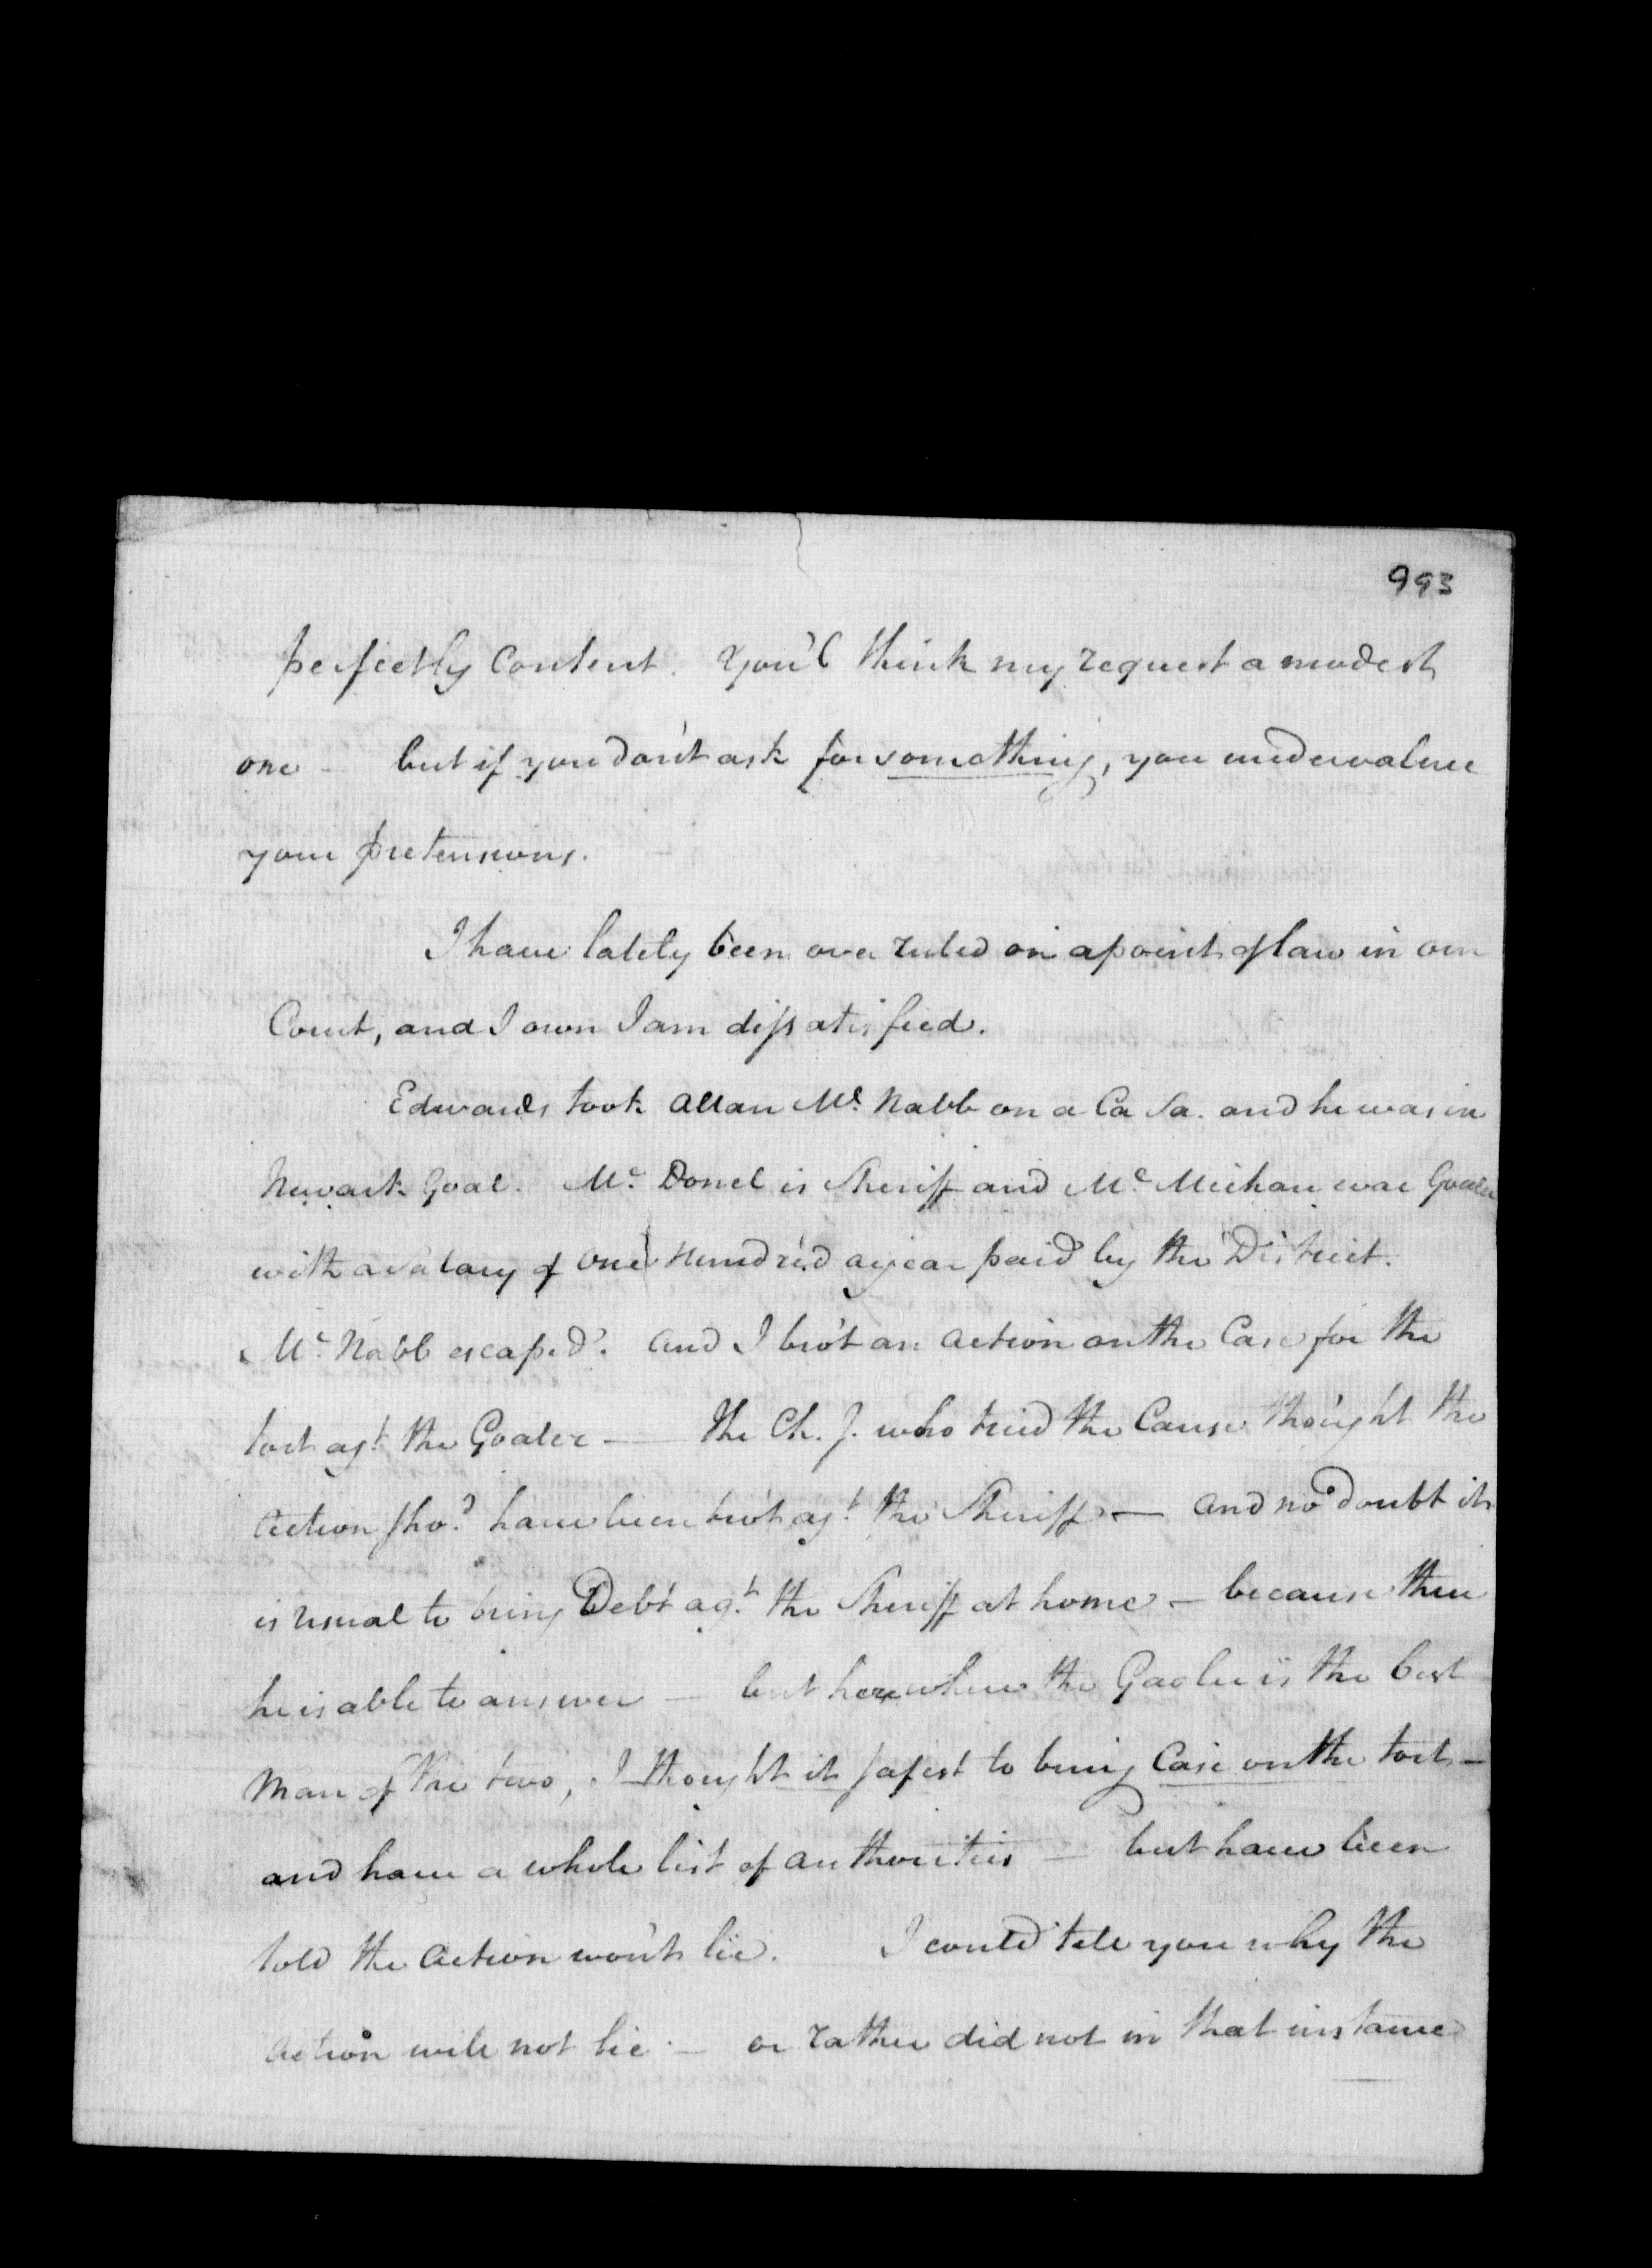 993
perfectly Content. You'l think my request a modest
one – but if you don't ask for something, you undervalue
your pretensions.
I have lately been over ruled on a point of law in our
Court, and I own I am dissatisfied.
Edwards took Allan Mc Nabb on a Ca Sa. and he was in
Newark Goal. Mc Donel is Sheriff and Mc Meekan was Goaler
with a salary of one Hundred a year paid by the District.
Mc Nabb escaped. And I bro't an action on the Case for the
tort agt the Goaler — The Ch. J. who tried the Cause tho'ught the
Action shod have been bro't agt the Sheriff — and no doubt it
is usual to bring Debt agt the Sheriff at home – because there
he is able to answer — but here where the Gaoler is the best
Man of the two, I thought it safest to bring Case on the tort –
and have a whole list of authorities — but have been
told the Action won't lie. I could tell you why the
Action will not lie – or rather did not in that instance